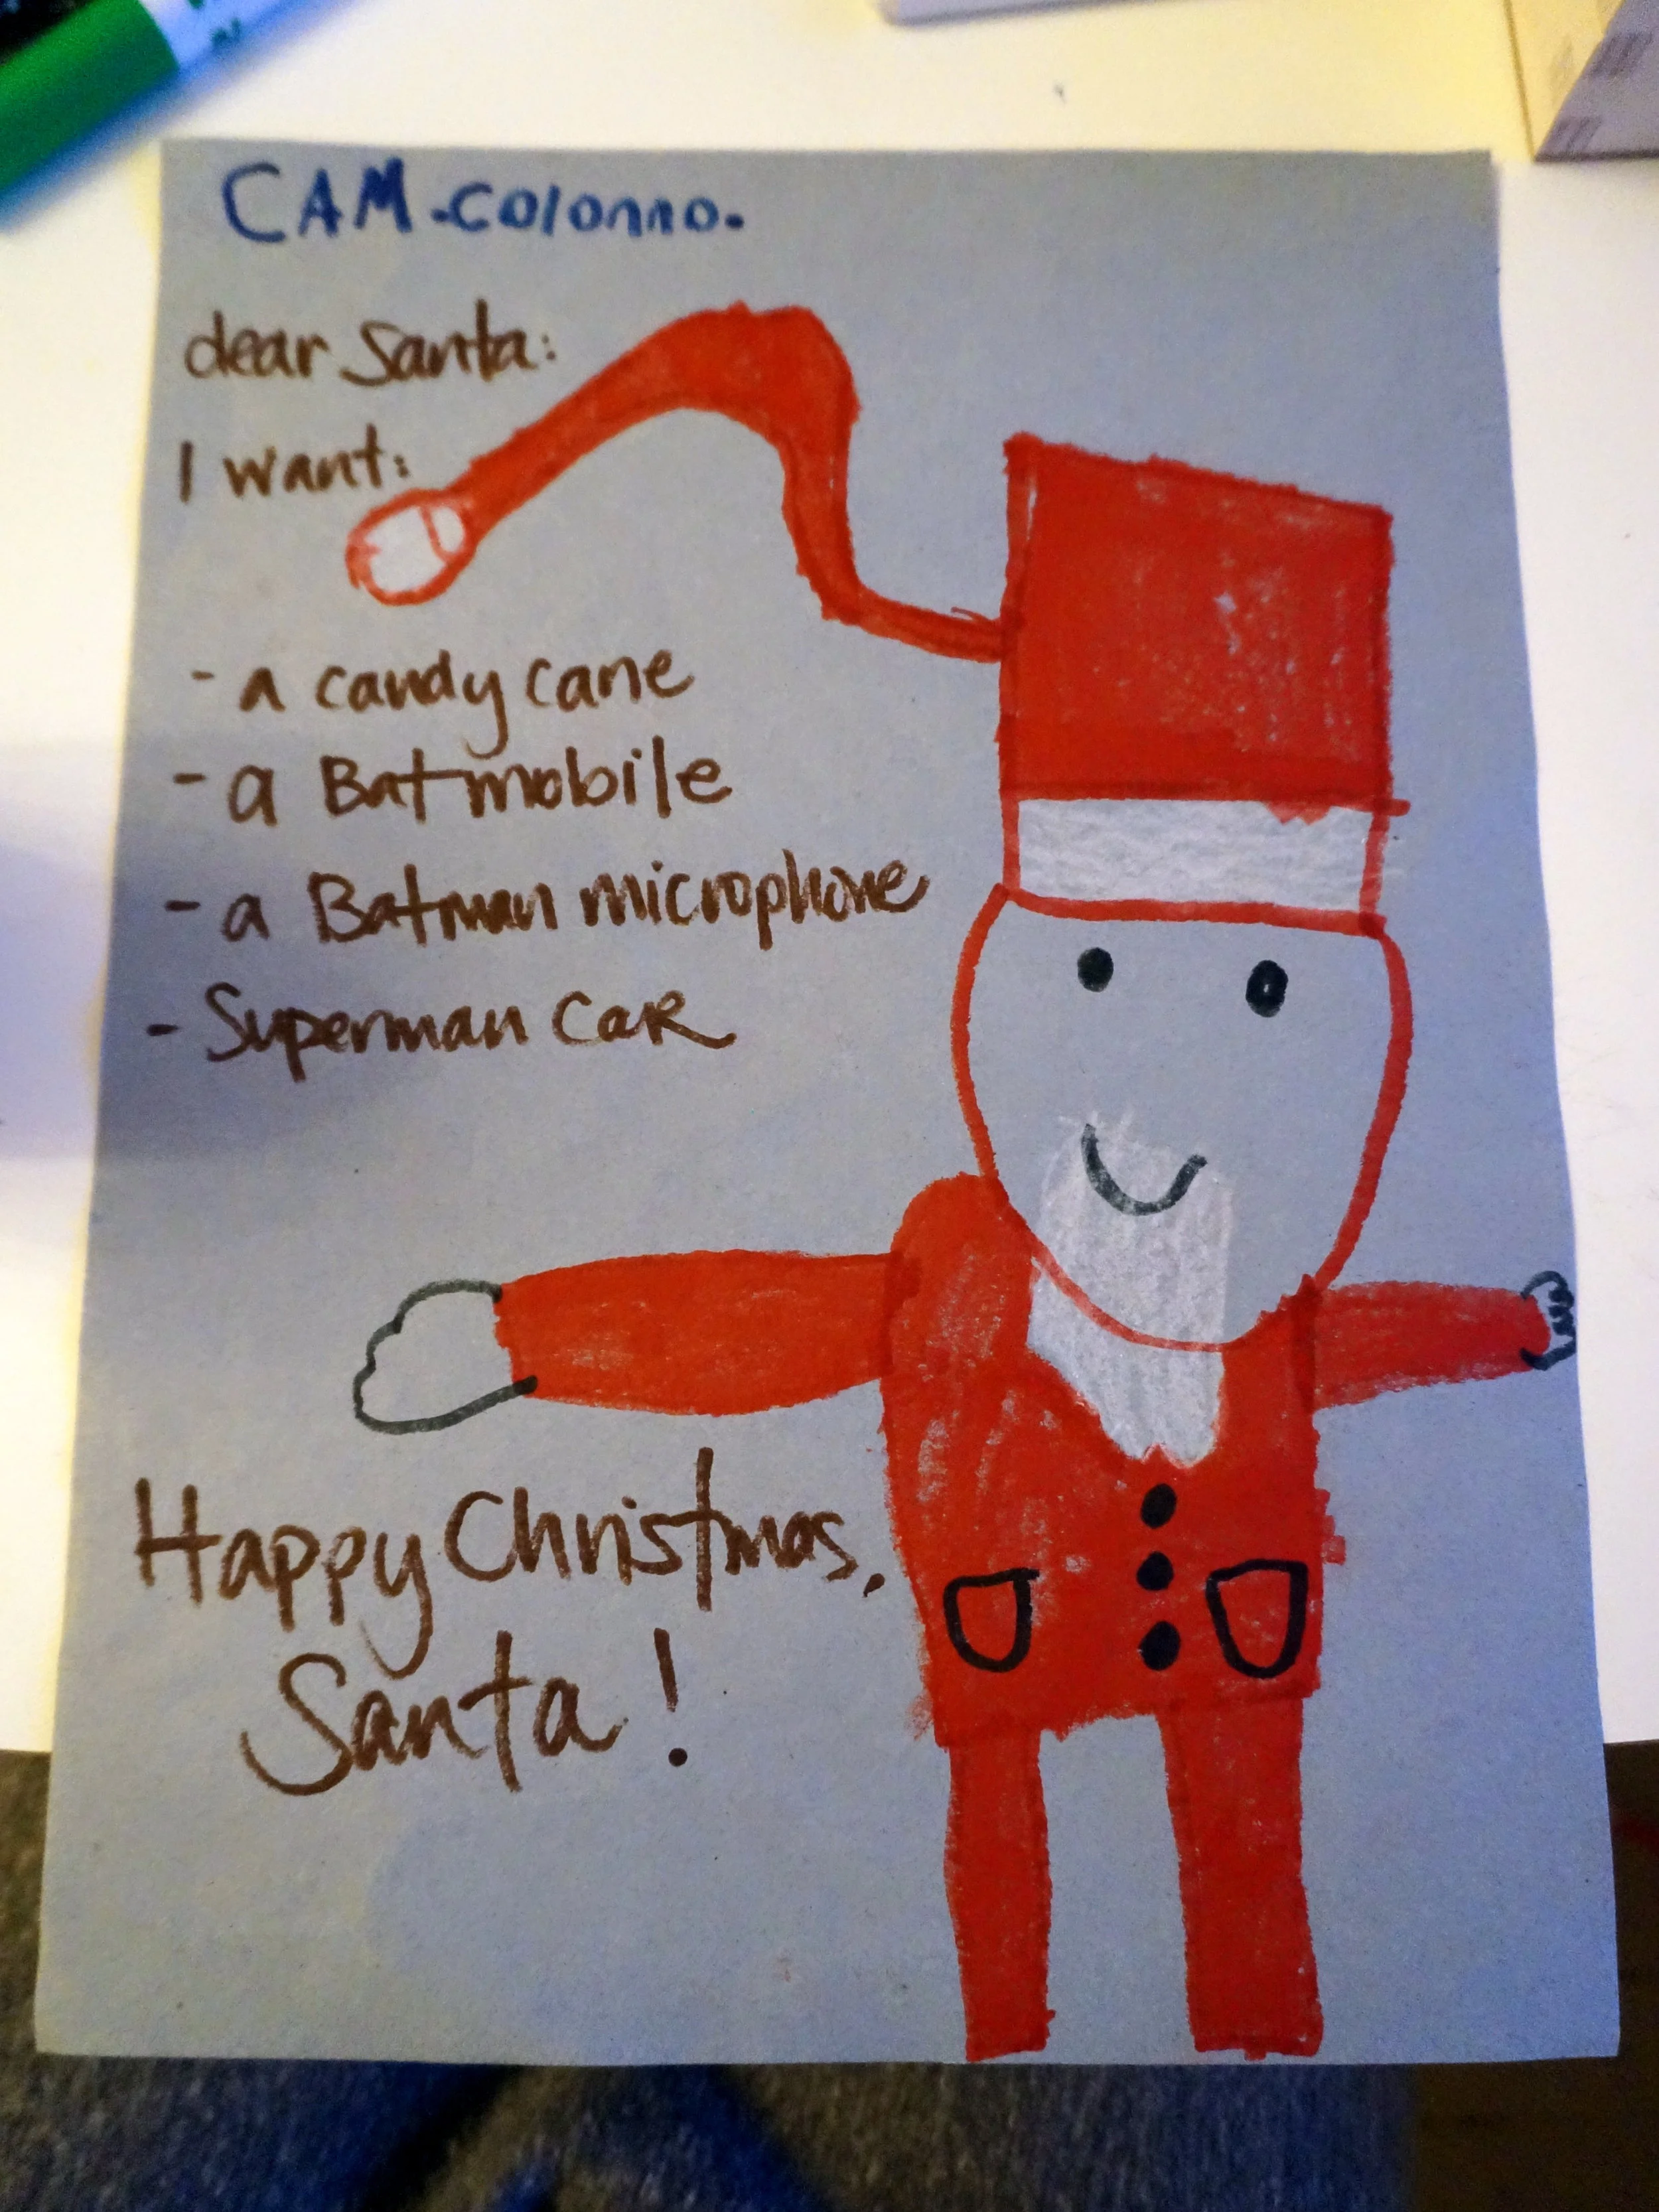 CAM-Colonno.
dear Santa:
I want:
- a candy cane
- a Batmobile
- a Batman microphone
- Superman CaR
Happy Christmas,
Santa!